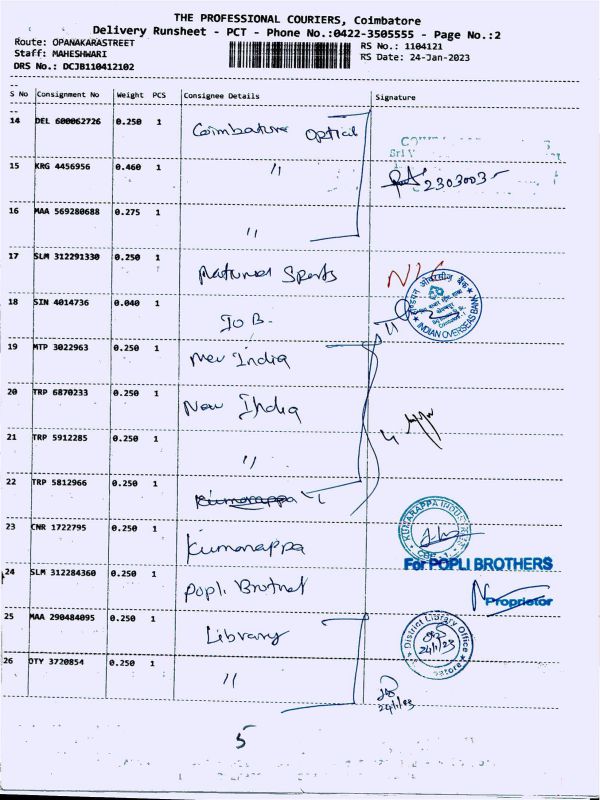 THE PROFESSIONAL COURIERS, Coimbatore
Delivery Runsheet - PCT - Phone No.:0422-3505555 - Page No.:2
Route: OPANAKARASTREET
Staff: MAHESHWARI
DRS No.: DCJB110412102
RS No.: 1104121
RS Date: 24-Jan-2023
S No Consignment No Weight PCS Consignee Details Signature
14 DEL 600062726 0.250 1 Coimbature Optical
15 KRG 4456956 0.460 1 "
2303003
16 MAA 569280688 0.275 1 "
17 SLM 312291330 0.250 1 National Sports
INDIAN OVERSEAS BANK
18 SIN 4014736 0.040 1 IOB.
19 MTP 3022963 0.250 1 New India
20 TRP 6870233 0.250 1 New India
21 TRP 5912285 0.250 1 "
22 TRP 5812966 0.250 1 Kumarappa
23 CNR 1722795 0.250 1 Kumarappa
KUMARAPPA
For POPLI BROTHERS
24 SLM 312284360 0.250 1 Popli Brothet
Proprietor
25 MAA 290484095 0.250 1 Library
District Library Office
24/1/23
26 OTY 3720854 0.250 1 "
24/1/23
5